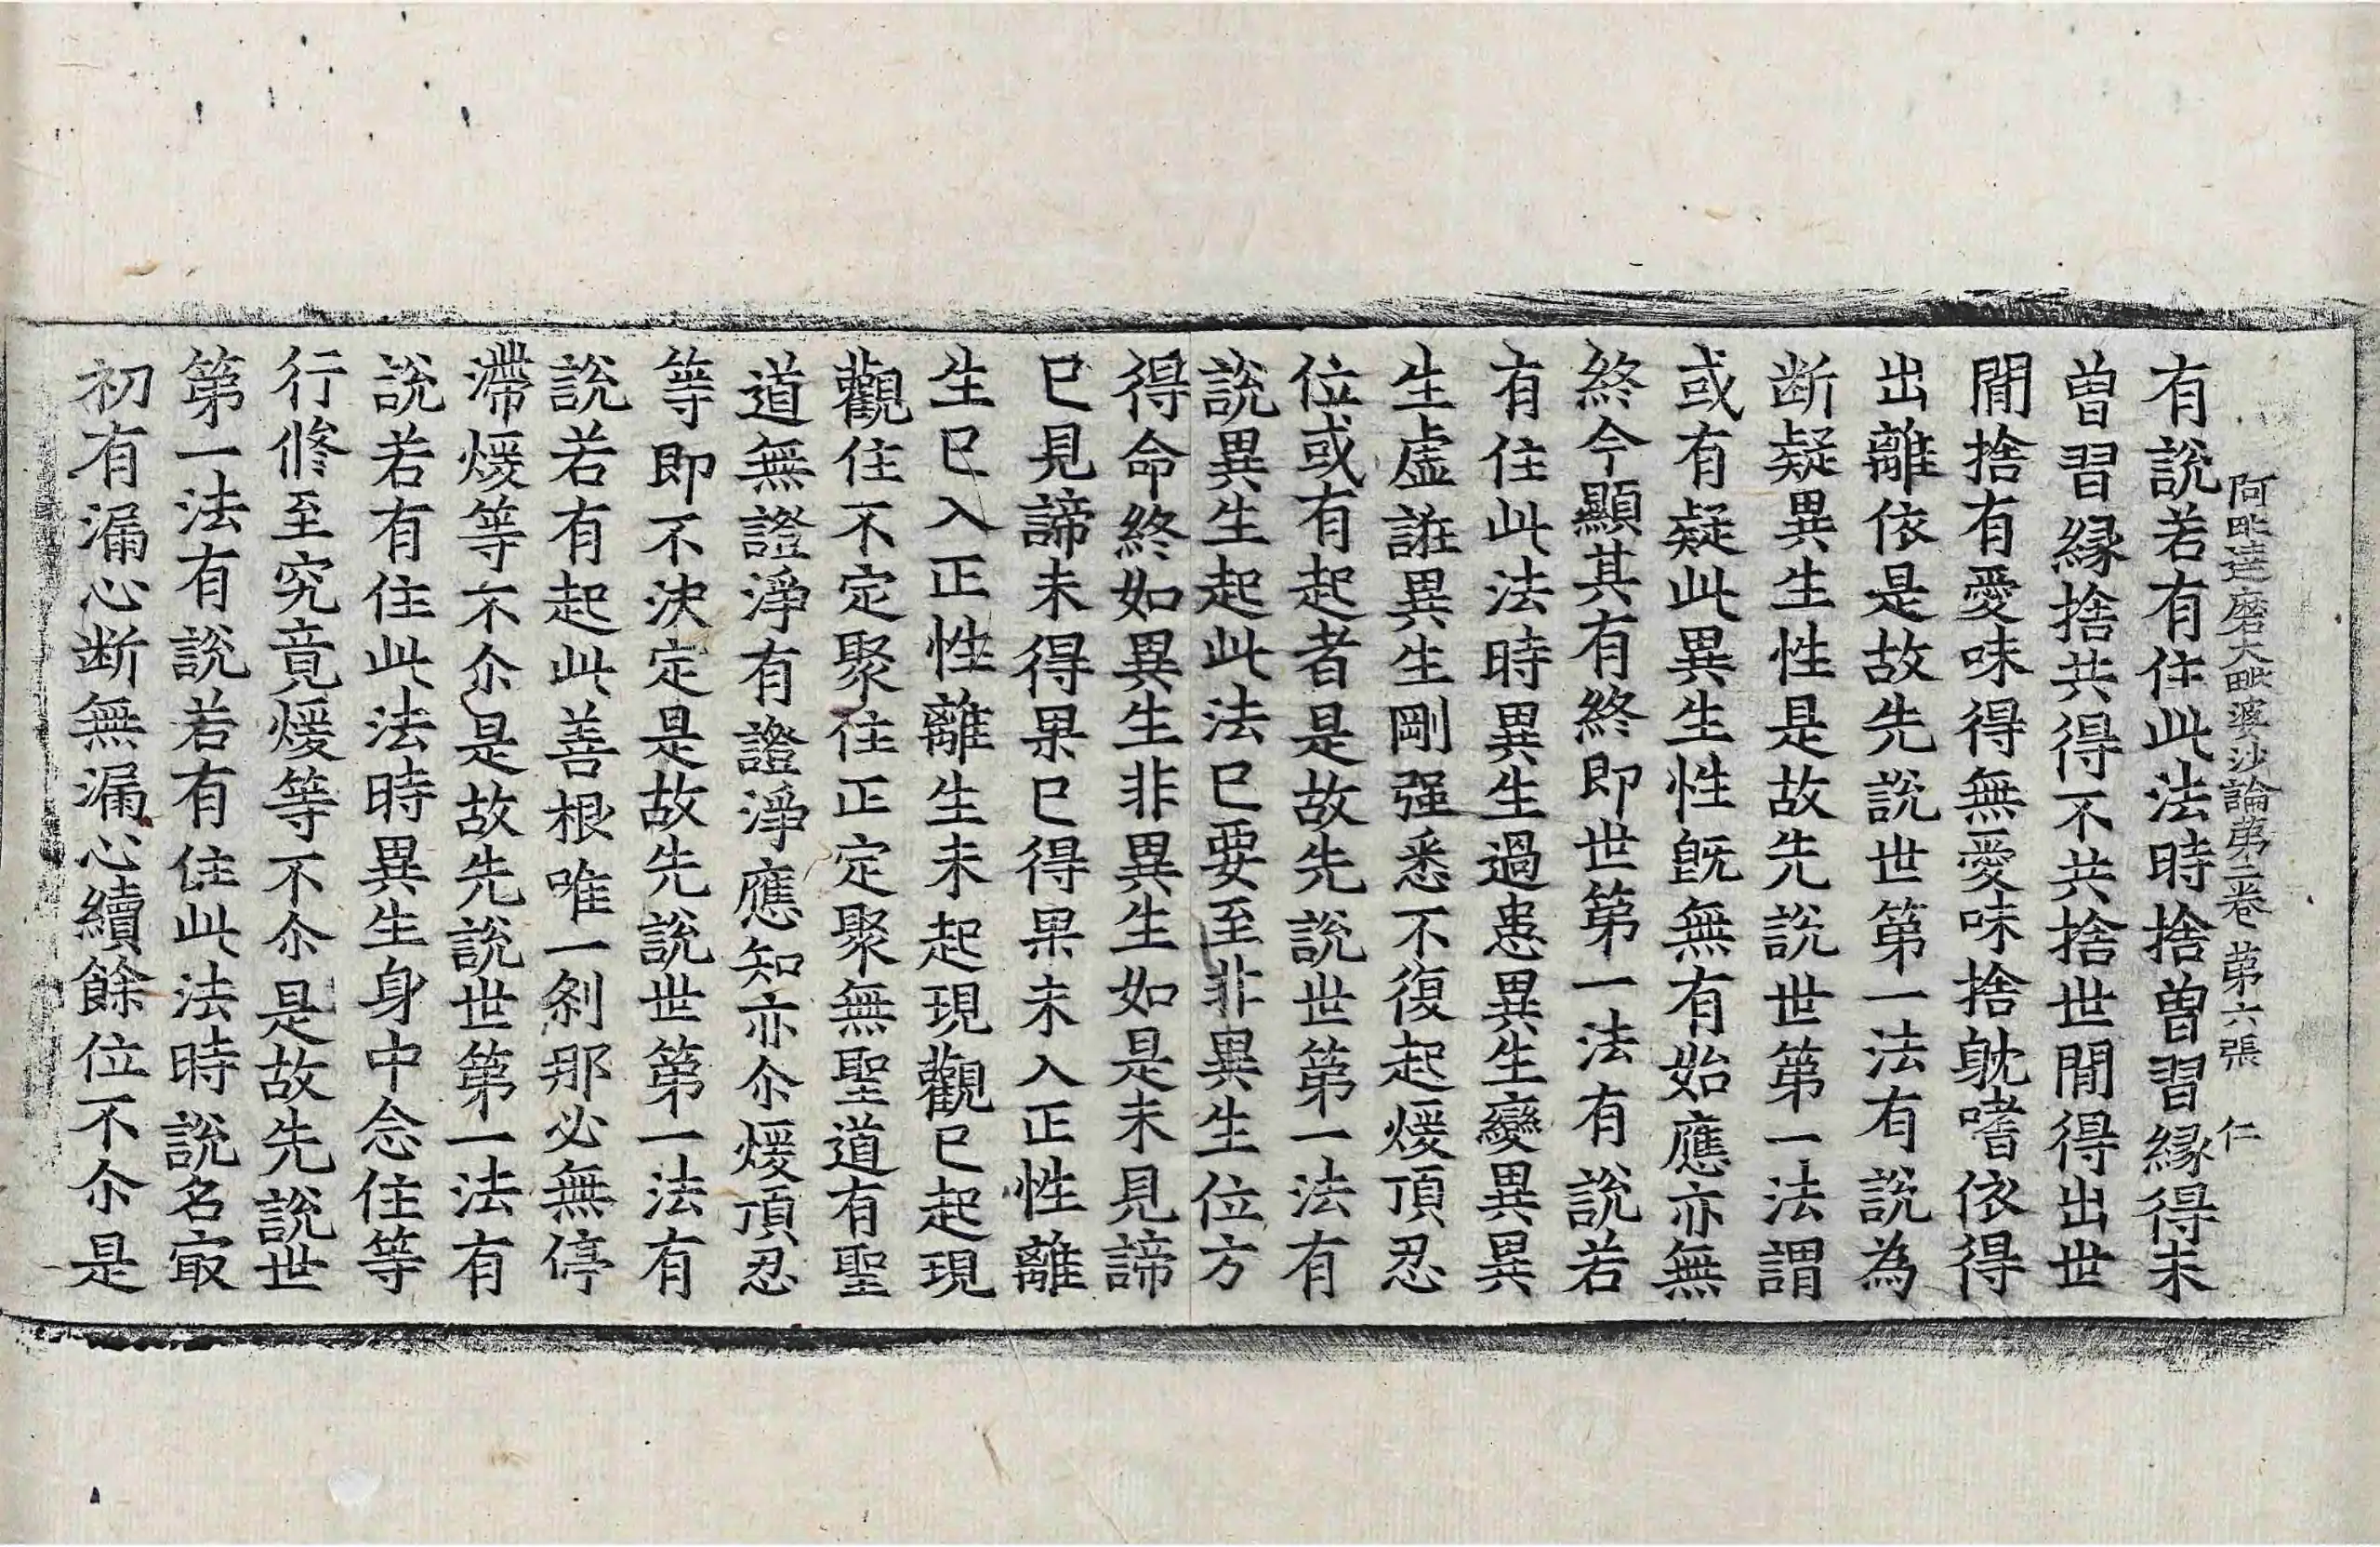 阿毗達磨大毗婆沙論第三卷 第六張 仁
有說若有住此法時捨曾習緣得未
曾習緣捨共得不共捨世間得出世
間捨有愛味得無愛味捨躭嗜依得
出離依是故先說世第一法有說為
断疑異生性是故先說世第一法謂
或有疑此異生性旣無有始應亦無
終今顯其有終即世第一法有說若
有住此法時異生過患異生變異異
生虛誑異生剛强悉不復起煖頂忍
位或有起者是故先說世第一法有
說異生起此法已要至非異生位方
得命終如異生非異生如是未見諦
已見諦未得果已得果未入正性離
生已入正性離生未起現觀已起現
觀住不定聚住正定聚無聖道有聖
道無證淨有證淨應知亦尒煖頂忍
等即不決定是故先說世第一法有
說若有起此善根唯一刹那必無停
滯煖等不尒是故先說世第一法有
說若有住此法時異生身中念住等
行修至究竟煖等不尒是故先說世
第一法有說若有住此法時說名㝡
初有漏心断無漏心續餘位不尒是